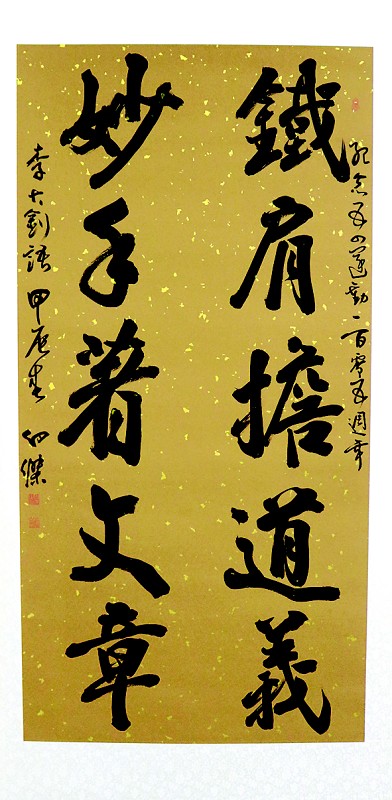 紀念五四運動一百零五週年
鐵肩擔道義
妙手著文章
李大釗語 甲辰春 傑